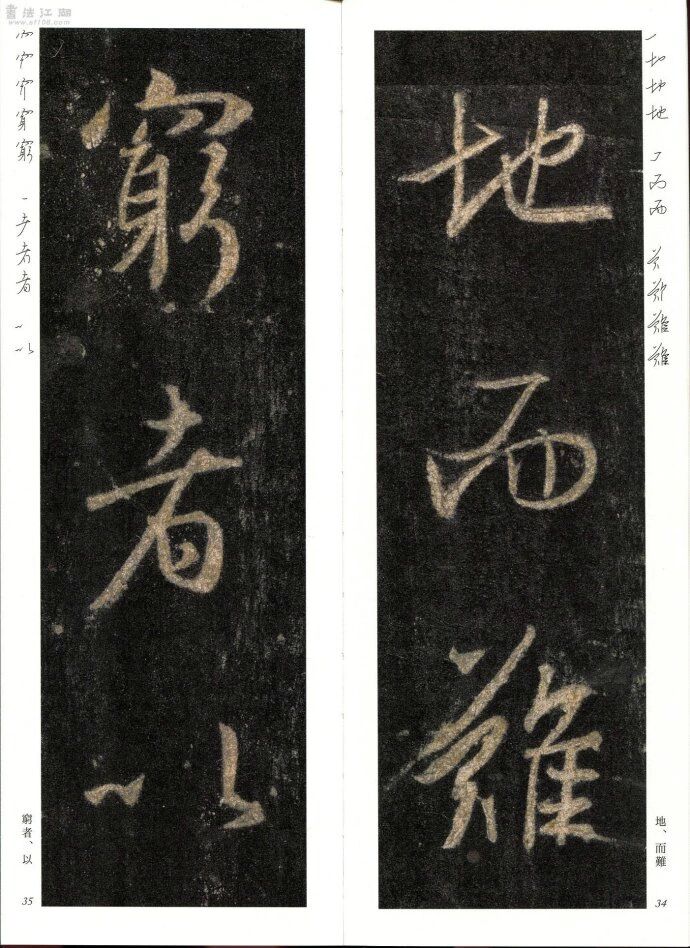 書法江湖
www.sf108.com
地而難
地、而難
34
窮者以
窮者、以
35